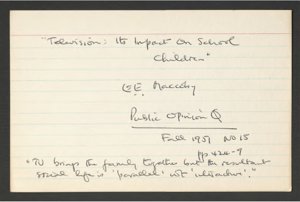 "Television: Its Impact On School
Children"
EE Maccoby
Public Opinion Q
Fall 1951 No 15
pp 424-9
"TV brings the family together but the resultant
social life is 'parallel' not 'interactive'."